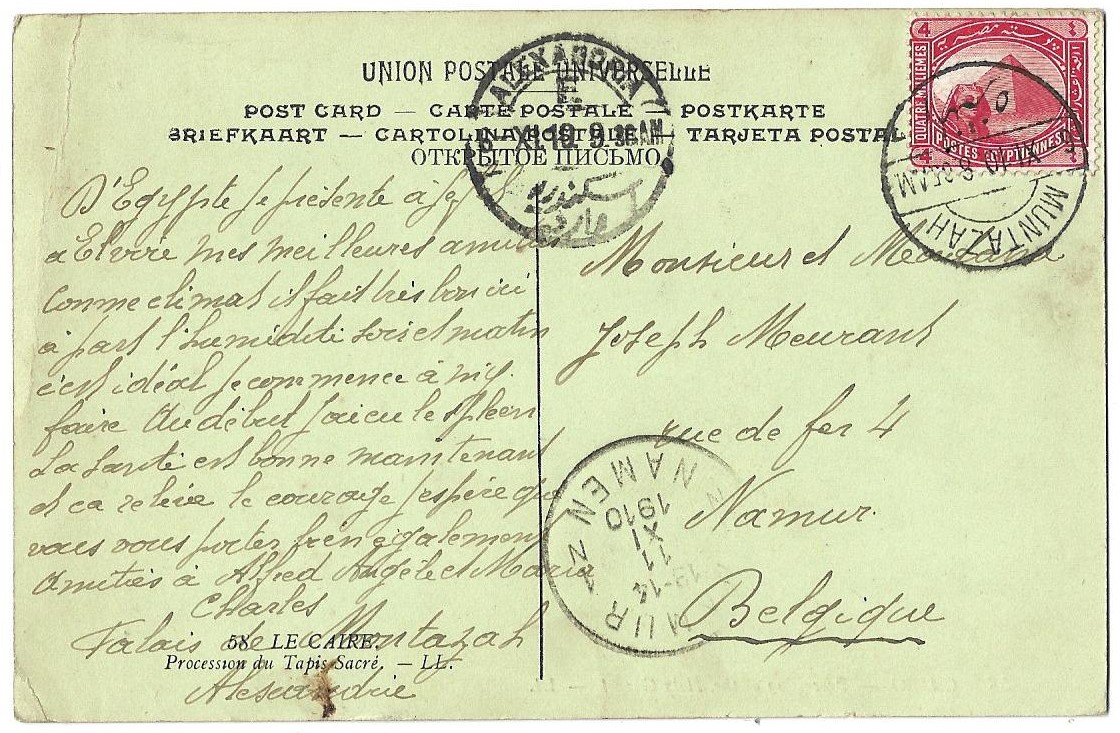 UNION POSTALE UNIVERSELLE
POST CARD — CARTE POSTALE — POSTKARTE
BRIEFKAART — CARTOLINA POSTALE — TARJETA POSTAL
ОТКРЫТОЕ ПИСЬМО
ALEXANDRIA
E
XI.10 9.30AM
اسكندرية
4 4
QUATRE MILLIEMES
POSTES EGYPTIENNES
4
MUNTAZAH
XI.10 8.35AM
D'Egypte je présente à
à Elvire mes meilleures
comme climat il fait très bon ici
à part l'humidité soir et matin
c'est idéal je commence à m'y
faire Au début j'ai eu le spleen
La santé est bonne maintenant
et ca relève le courage j'espère que
vous vous porter bien également
Amitiés à Alfred Angèle et Maria
Charles
Palais de Montazah
Alexandrie
58 LE CAIRE.
Procession du Tapis Sacré. — LL.
Monsieur et Madame
Joseph Meurant
rue de fer 4
Namur
Belgique
NAMUR NAMEN
13-14
11
XI
1910